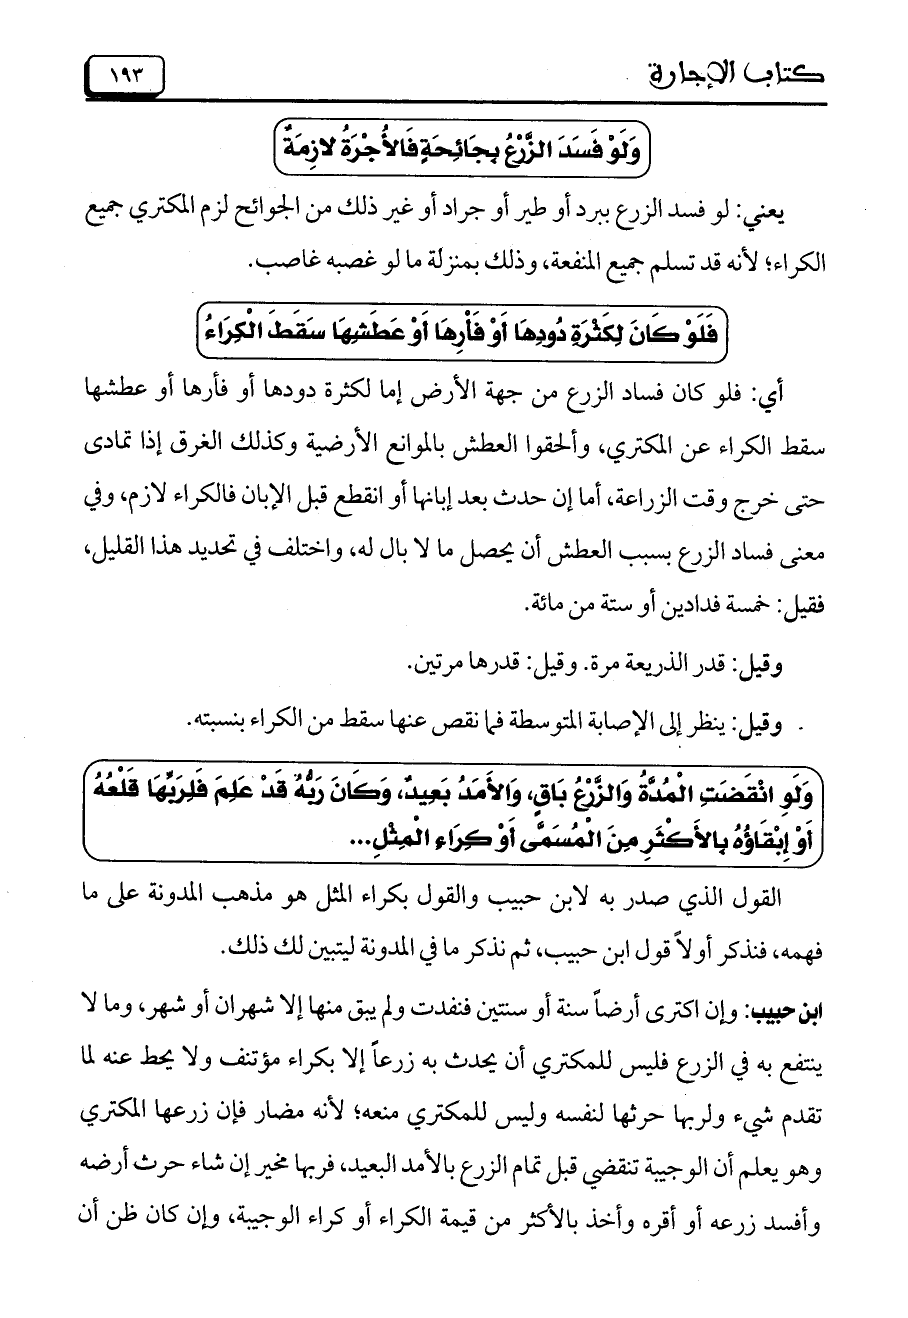 كتاب الإجارة
١٩٣
وَلَوْ فَسَدَ الزَّرْعُ بِجَائِحَةٍ فَالأُجْرَةُ لازِمَةٌ
يعني: لو فسد الزرع ببرد أو طير أو جراد أو غير ذلك من الجوائح لزم المكتري جميع
الكراء؛ لأنه قد تسلم جميع المنفعة، وذلك بمنزلة ما لو غصبه غاصب.
فَلَوْ كَانَ لِكَثْرَةِ دُودِهَا أَوْ فَأْرِهَا أَوْ عَطَشِهَا سَقَطَ الْكِرَاءُ
أي: فلو كان فساد الزرع من جهة الأرض إما لكثرة دودها أو فأرها أو عطشها
سقط الكراء عن المكتري، وألحقوا العطش بالموانع الأرضية وكذلك الغرق إذا تمادى
حتى خرج وقت الزراعة، أما إن حدث بعد إبانها أو انقطع قبل الإبان فالكراء لازم، وفي
معنى فساد الزرع بسبب العطش أن يحصل ما لا بال له، واختلف في تحديد هذا القليل،
فقيل: خمسة فدادين أو ستة من مائة.
وقيل: قدر الذريعة مرة. وقيل: قدرها مرتين.
وقيل: ينظر إلى الإصابة المتوسطة فما نقص عنها سقط من الكراء بنسبته.
وَلَوِ انْقَضَتِ الْمُدَّةُ وَالزَّرْعُ بَاقٍ، وَالأَمَدُ بَعِيدٌ، وَكَانَ رَبُّهُ قَدْ عَلِمَ فَلِرَبِّهَا قَلْعُهُ
أَوْ إِبْقَاؤُهُ بِالأَكْثَرِ مِنَ الْمُسَمَّى أَوْ كِرَاءِ الْمِثْلِ...
القول الذي صدر به لابن حبيب والقول بكراء المثل هو مذهب المدونة على ما
فهمه، فنذكر أولاً قول ابن حبيب، ثم نذكر ما في المدونة ليتبين لك ذلك.
ابن حبيب: وإن اكترى أرضاً سنة أو سنتين فنفدت ولم يبق منها إلا شهران أو شهر، وما لا
ينتفع به في الزرع فليس للمكتري أن يحدث به زرعاً إلا بكراء مؤتنف ولا يحط عنه لما
تقدم شيء ولربها حرثها لنفسه وليس للمكتري منعه؛ لأنه مضار فإن زرعها المكتري
وهو يعلم أن الوجيبة تنقضي قبل تمام الزرع بالأمد البعيد، فربها مخير إن شاء حرث أرضه
وأفسد زرعه أو أقره وأخذ بالأكثر من قيمة الكراء أو كراء الوجيبة، وإن كان ظن أن